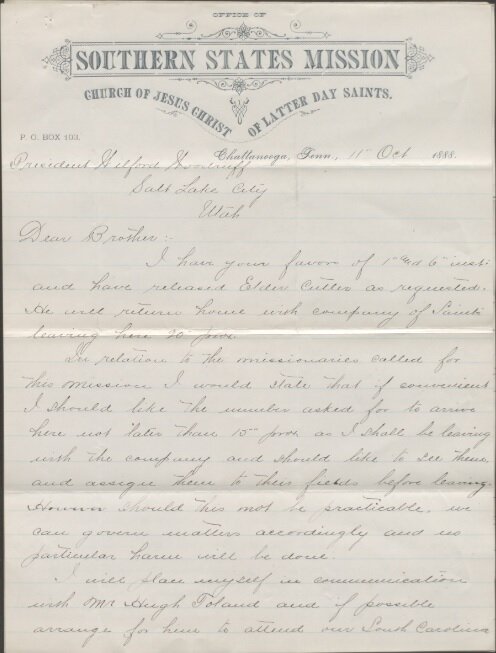 OFFICE OF
SOUTHERN STATES MISSION
CHURCH OF JESUS CHRIST OF LATTER DAY SAINTS.
P. O. BOX 103.
Chattanooga, Tenn., 11" Oct 1888.
President Wilford Woodruff
Salt Lake City
Utah
Dear Brother:-
I have your favors of 1st and 6" inst.
and have released Elder Cutler as requested.
He will return home with company of Saints
leaving here 20" prox.
In relation to the missionaries called for
this mission I would state that if convenient
I should like the number asked for to arrive
here not later than 15" prox as I shall be leaving
with the company and should like to see them
and assign them to their fields before leaving.
However should this not be practicable, we
can govern matters accordingly and no
particular harm will be done.
I will place myself in communication
with Mr Hugh Toland and if possible
arrange for him to attend our South Carolina